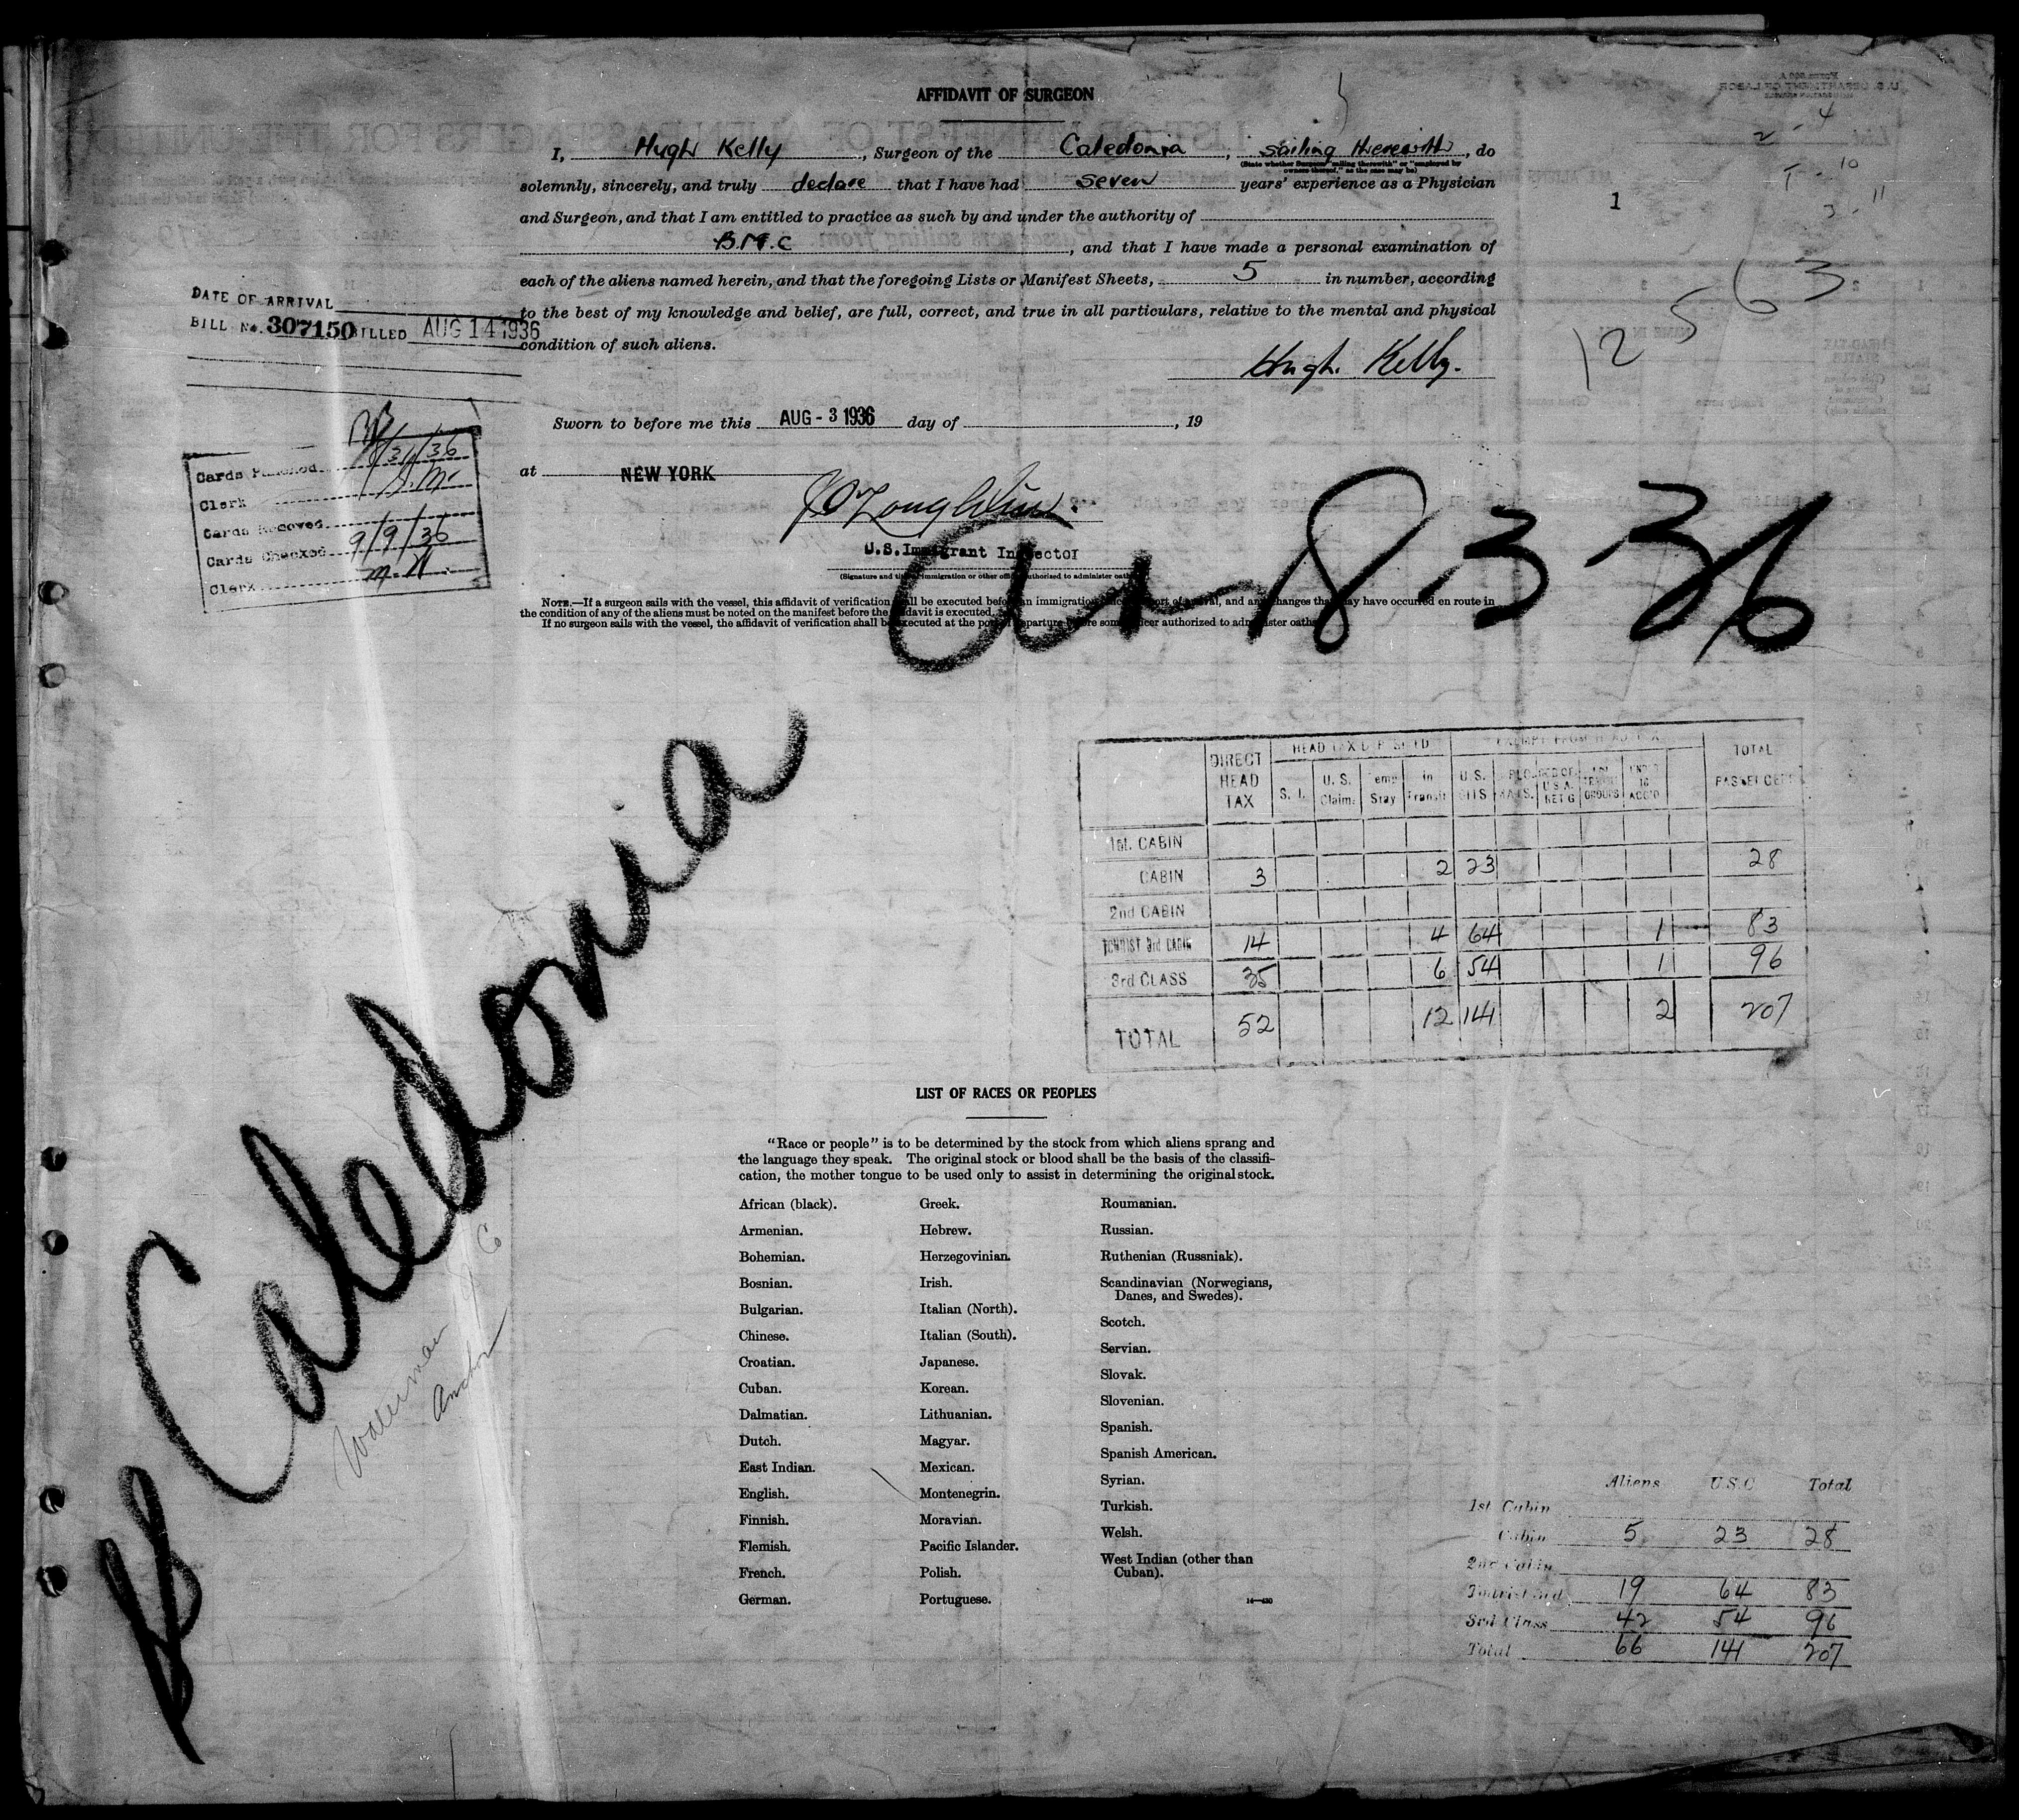 AFFIDAVIT OF SURGEON
I, Hugh Kelly, Surgeon of the Caledonia, sailing therewith, do
(State whether Surgeon "sailing therewith" or "employed by owners thereof," as the case may be)
solemnly, sincerely, and truly declare that I have had seven years' experience as a Physician
and Surgeon, and that I am entitled to practice as such by and under the authority of
B.M.C, and that I have made a personal examination of
each of the aliens named herein, and that the foregoing Lists or Manifest Sheets, 5 in number, according
to the best of my knowledge and belief, are full, correct, and true in all particulars, relative to the mental and physical
condition of such aliens.
Hugh Kelly.
Sworn to before me this AUG - 3 1936 day of , 19
at NEW YORK
U.S. Immigrant Inspector
(Signature and title of immigration or other officer authorized to administer oaths)
NOTE.—If a surgeon sails with the vessel, this affidavit of verification shall be executed before an immigration officer at port of arrival, and any changes that may have occurred en route in
the condition of any of the aliens must be noted on the manifest before the affidavit is executed.
If no surgeon sails with the vessel, the affidavit of verification shall be executed at the port of departure before some officer authorized to administer oaths.
1
12563
DATE OF ARRIVAL
BILL No. 307150 BILLED AUG 14 1936
Cards Punched 8/31/36
Clerk
Cards Removed
Cards Checked 9/9/36
Clerk
Arr 8-3-36
SS Caledonia
Waterman
Anchor
DIRECT HEAD TAX
S. I.
U. S. Claim.
Temp Stay
In Transit
U.S. CITS
TOTAL PASSENGERS
1st. CABIN
CABIN 3 2 23 28
2nd CABIN
TOURIST 3rd CABIN 14 4 64 1 83
3rd CLASS 35 6 54 1 96
TOTAL 52 12 141 2 207
LIST OF RACES OR PEOPLES
"Race or people" is to be determined by the stock from which aliens sprang and
the language they speak. The original stock or blood shall be the basis of the classifi-
cation, the mother tongue to be used only to assist in determining the original stock.
African (black).
Armenian.
Bohemian.
Bosnian.
Bulgarian.
Chinese.
Croatian.
Cuban.
Dalmatian.
Dutch.
East Indian.
English.
Finnish.
Flemish.
French.
German.
Greek.
Hebrew.
Herzegovinian.
Irish.
Italian (North).
Italian (South).
Japanese.
Korean.
Lithuanian.
Magyar.
Mexican.
Montenegrin.
Moravian.
Pacific Islander.
Polish.
Portuguese.
Roumanian.
Russian.
Ruthenian (Russniak).
Scandinavian (Norwegians,
Danes, and Swedes).
Scotch.
Servian.
Slovak.
Slovenian.
Spanish.
Spanish American.
Syrian.
Turkish.
Welsh.
West Indian (other than
Cuban).
Aliens U.S.C Total
1st Cabin
Cabin 5 23 28
2nd Cabin
Tourist 3rd 19 64 83
3rd Class 42 54 96
Total 66 141 207